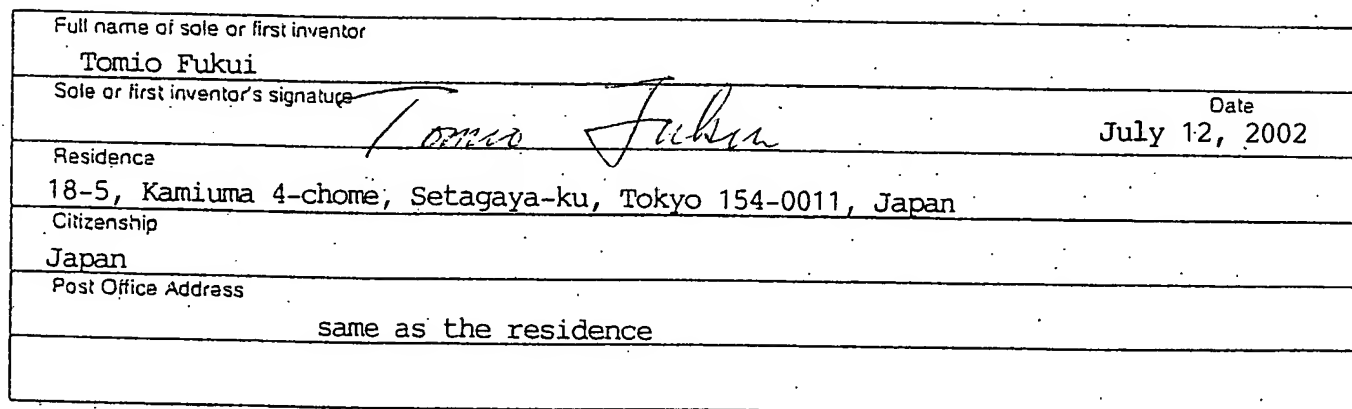 Full name of sole or first inventor
Tomio Fukui
Sole or first inventor's signature
Tomio Fukui
Date
July 12, 2002
Residence
18-5, Kamiuma 4-chome, Setagaya-ku, Tokyo 154-0011, Japan
Citizenship
Japan
Post Office Address
same as the residence